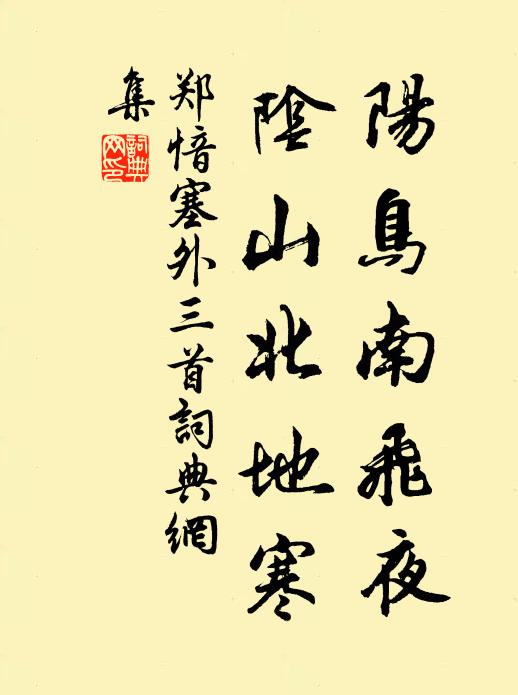 陽鳥南飛夜
陰山北地寒
郑愔塞外三首詞典網
集
詞典
网印